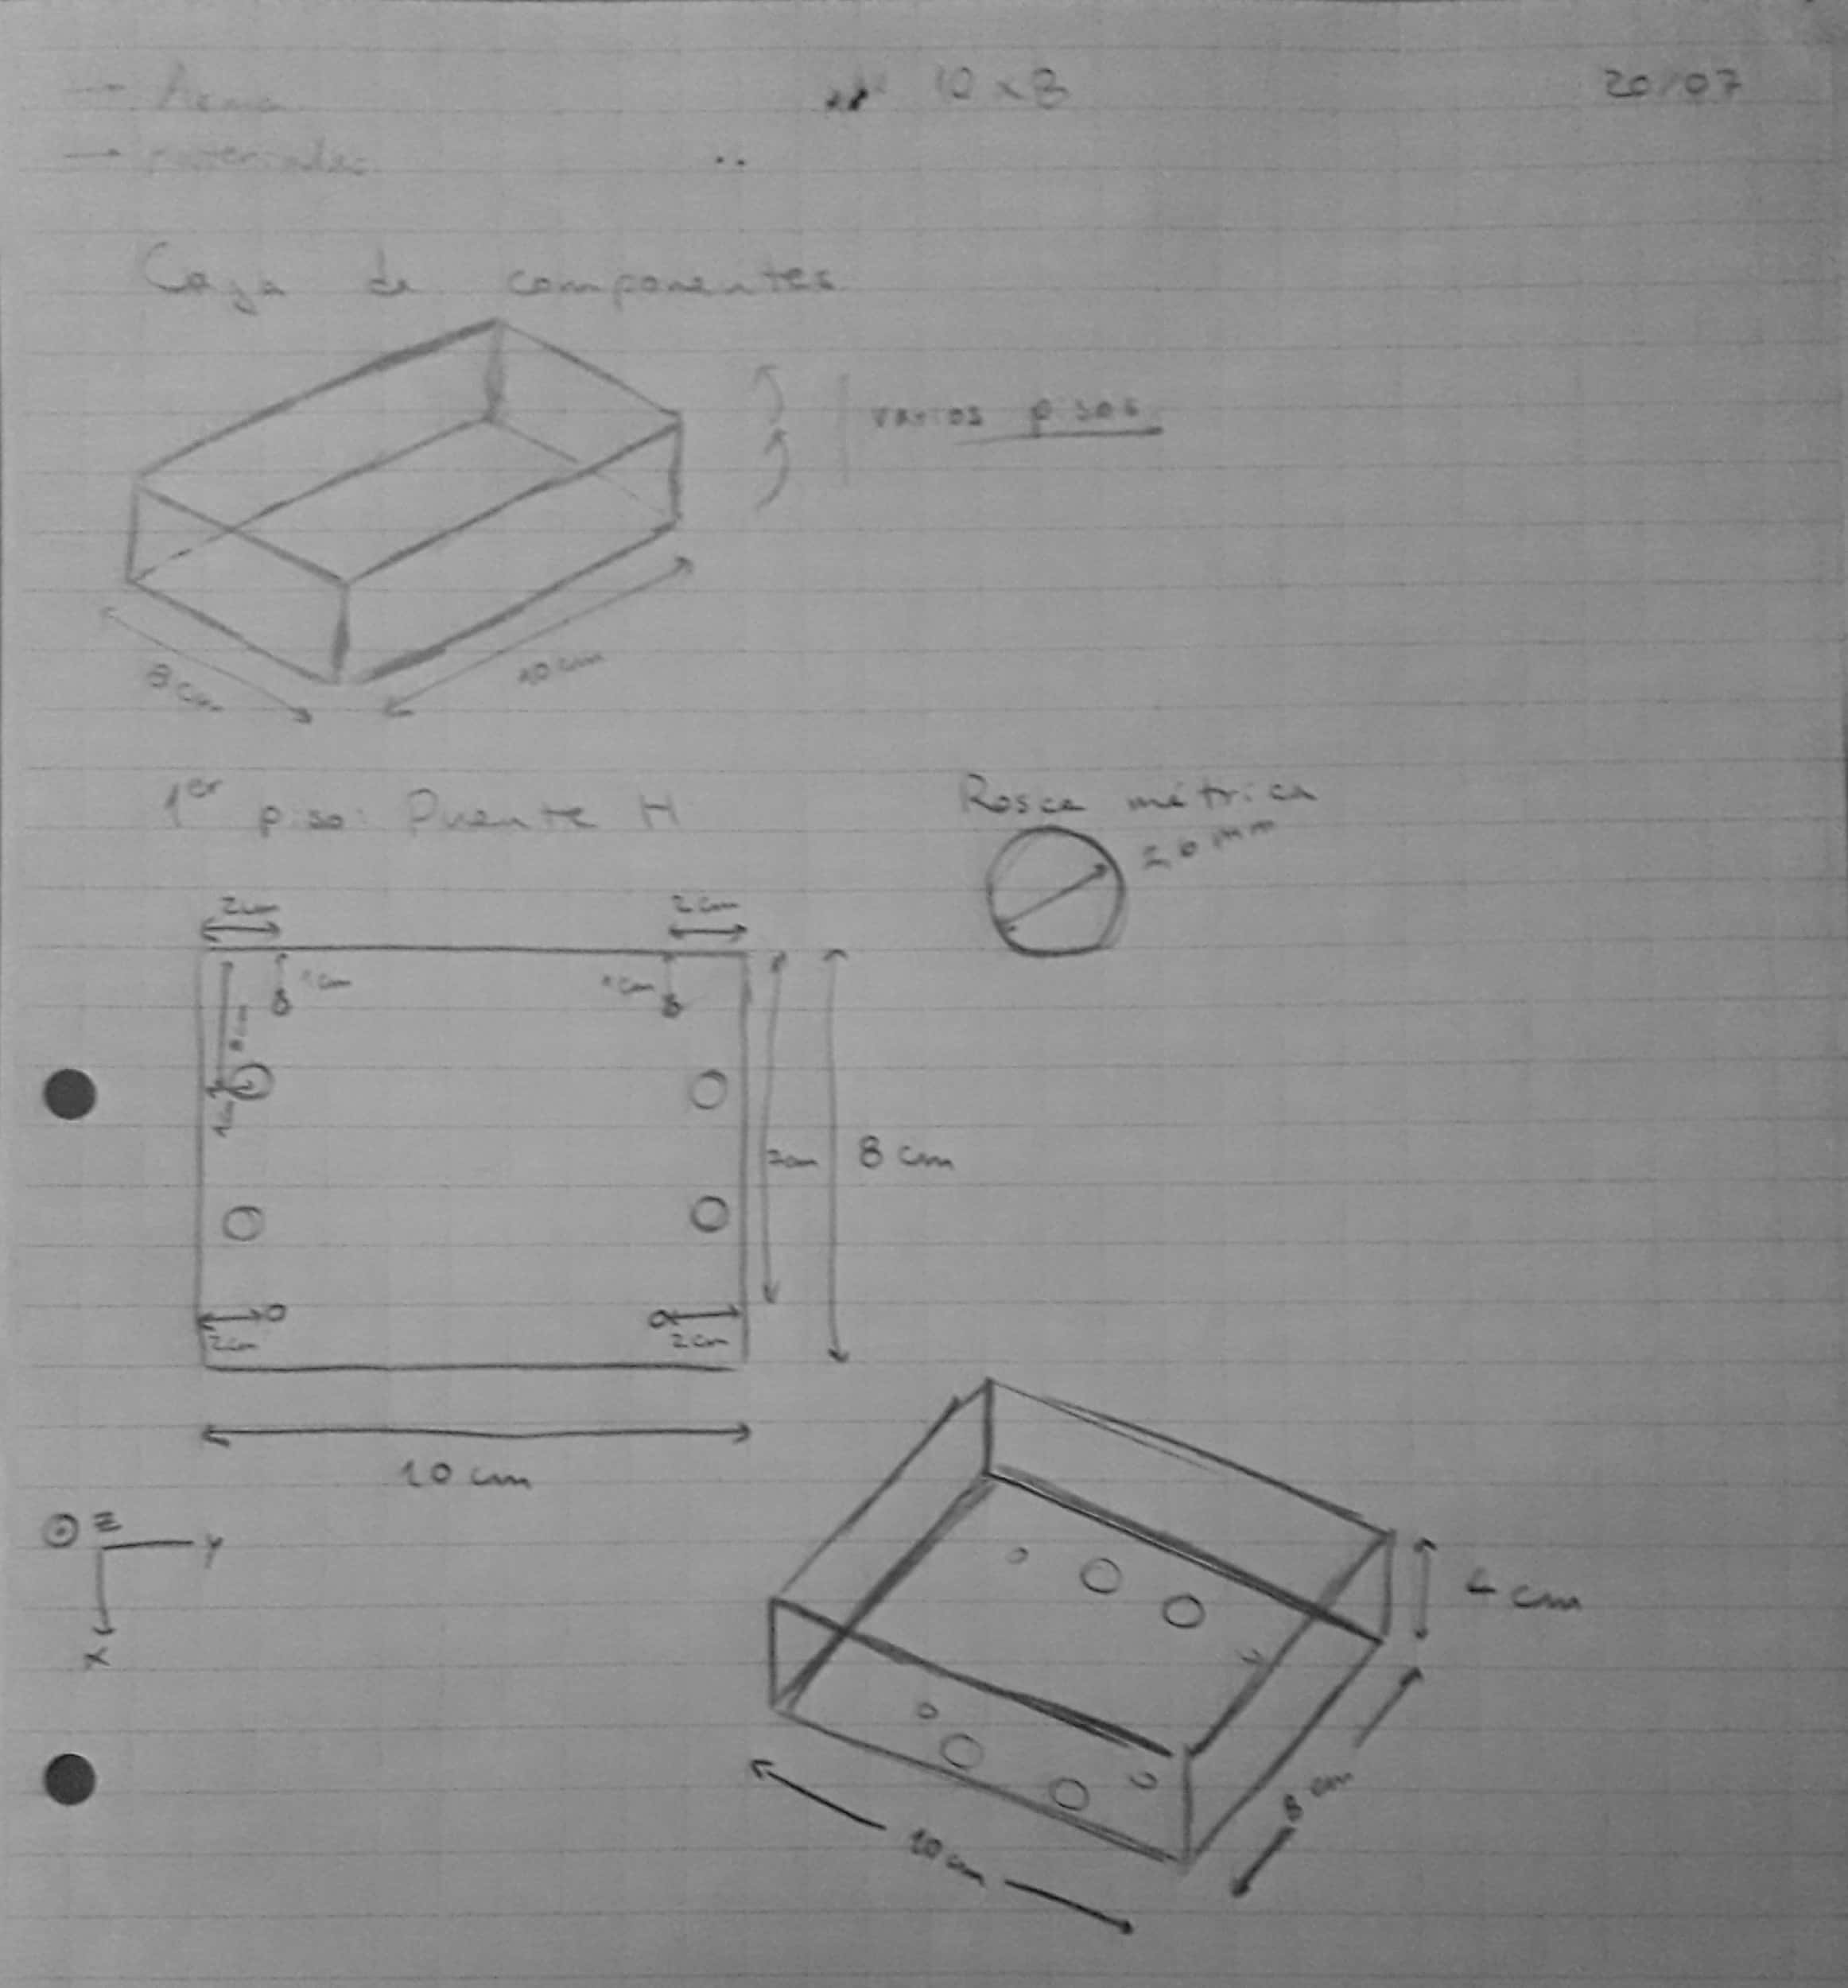 → Arma
10 x 8
20/07
→ materiales
Caja de componentes
varios pisos
8 cm
10 cm
1er piso: Puente H
Rosca métrica
20 mm
2cm
2cm
1cm
1cm
1cm
7cm
8 cm
2cm
2cm
10 cm
Z
Y
X
4 cm
8 cm
10 cm